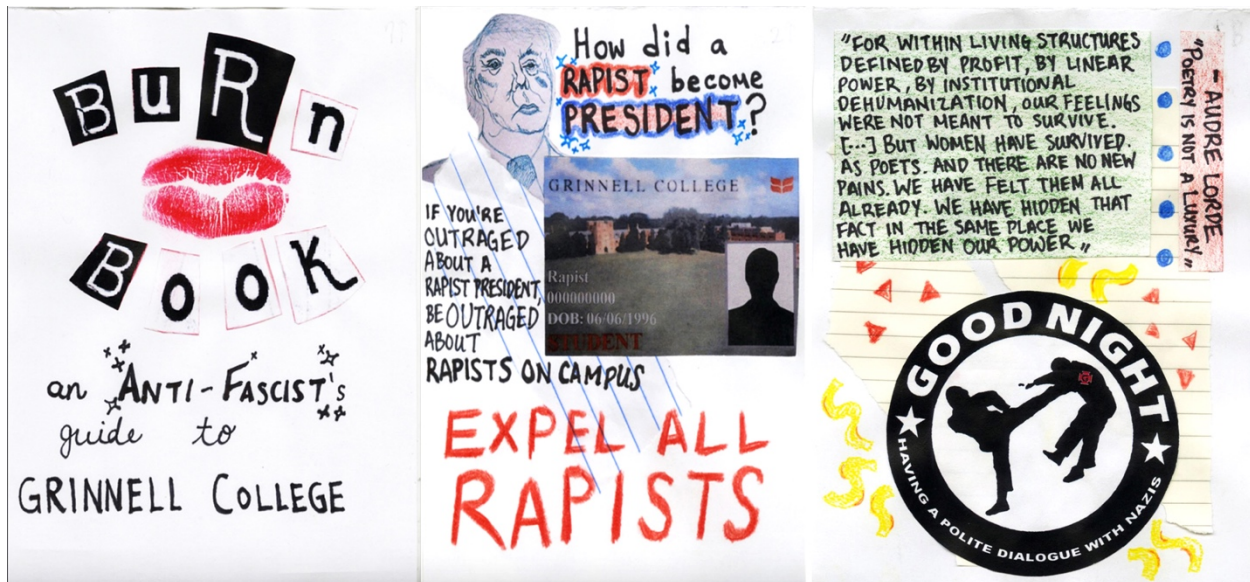 BuRn
BOOK
an ANTI-FASCIST's
guide to
GRINNELL COLLEGE
How did a
RAPIST become
PRESIDENT?
GRINNELL COLLEGE
Rapist
000000000
DOB: 06/06/1996
STUDENT
IF YOU'RE
OUTRAGED
ABOUT A
RAPIST PRESIDENT,
BE OUTRAGED
ABOUT
RAPISTS ON CAMPUS
EXPEL ALL
RAPISTS
"FOR WITHIN LIVING STRUCTURES
DEFINED BY PROFIT, BY LINEAR
POWER, BY INSTITUTIONAL
DEHUMANIZATION, OUR FEELINGS
WERE NOT MEANT TO SURVIVE.
[...] BUT WOMEN HAVE SURVIVED.
AS POETS. AND THERE ARE NO NEW
PAINS. WE HAVE FELT THEM ALL
ALREADY. WE HAVE HIDDEN THAT
FACT IN THE SAME PLACE WE
HAVE HIDDEN OUR POWER"
- AUDRE LORDE
"POETRY IS NOT A LUXURY"
GOOD NIGHT
HAVING A POLITE DIALOGUE WITH NAZIS